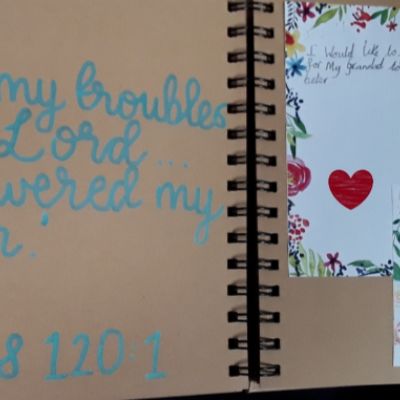 my troubles
Lord...
wered my
r!
s 120:1
I Would like to
for My grandad to
better